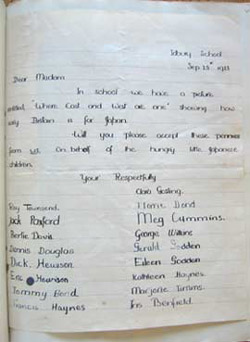 Tidbury School
Sep 23rd
Dear Madam
In school we have a picture
entitled "Where East and West are one" showing how
Britain is for Japan.
Will you please accept these pennies
from us on behalf of the hungry little Japanese
children.
Your Respectfully
Clara Gosling.
Roy Townsend. Bond
Jack Pagford Meg Cummins.
Bertie Davis George Wilkins
Dennis Douglas Gerald Sodden
Dick. Hewison Eileen Sodden
Eric Hewison Kathleen Haynes
Tommy Bond Marjorie Timms.
Haynes Iris Benfield.